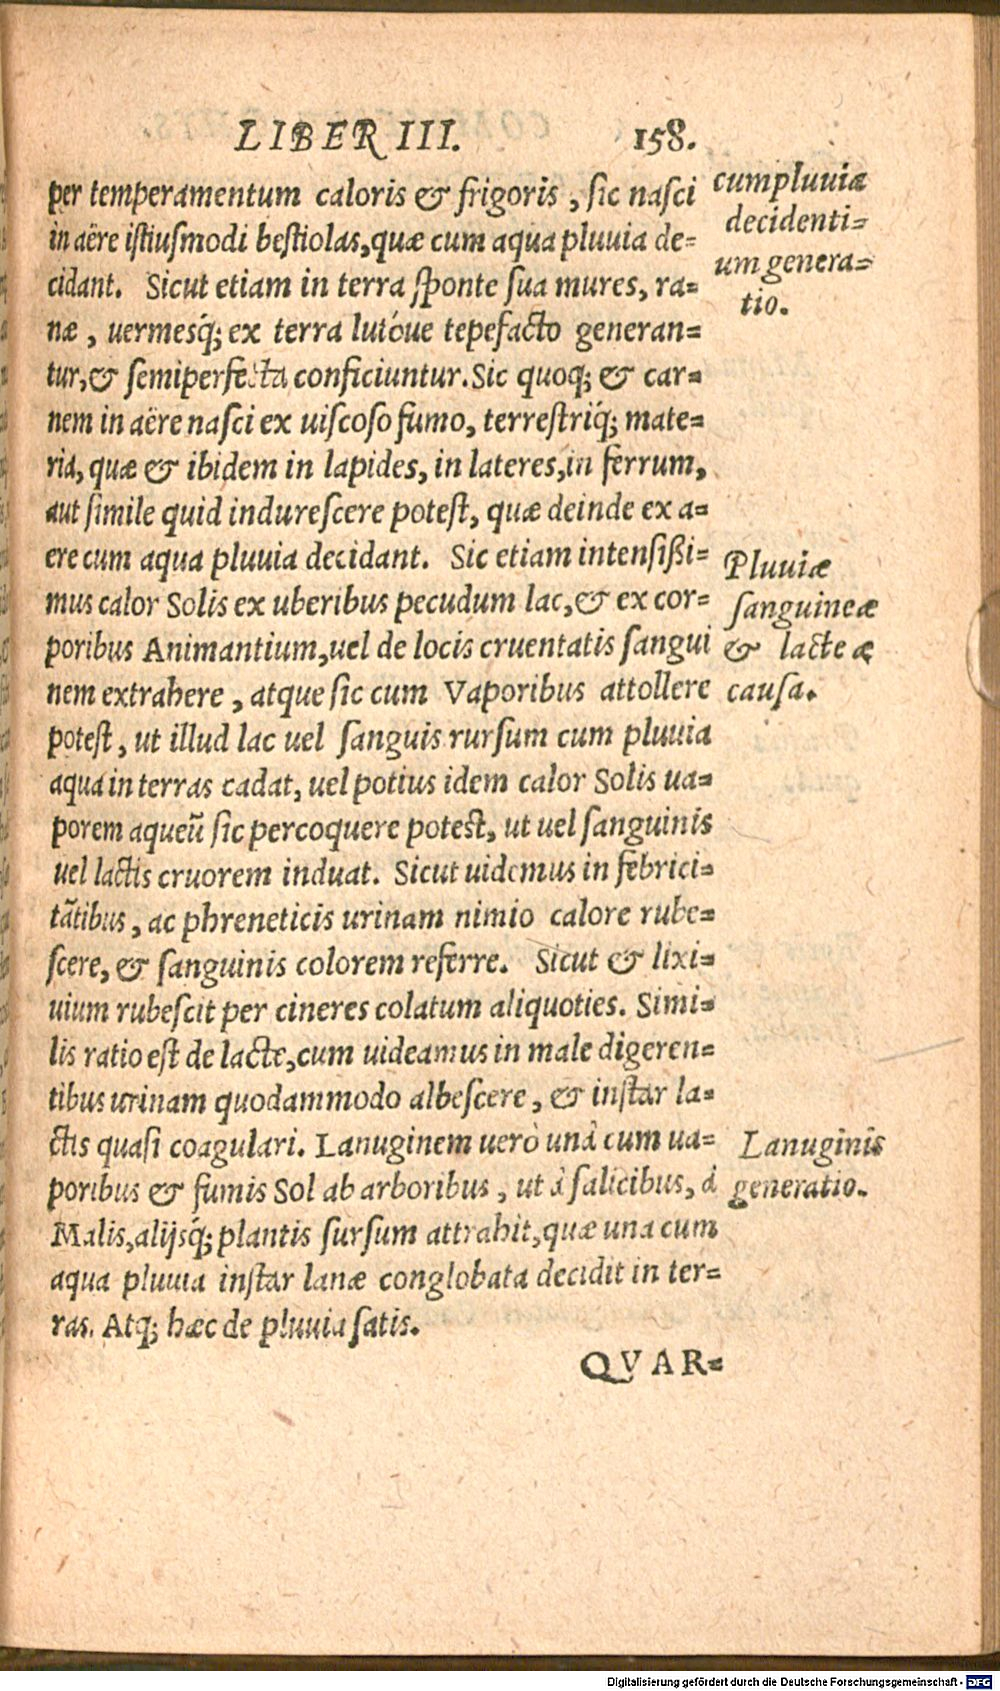 LIBER III. 158.
per temperamentum caloris & frigoris, sic nasci
in aëre istiusmodi bestiolas, quæ cum aqua pluuia de=
cidant. Sicut etiam in terra sponte sua mures, ra=
næ, uermesq́; ex terra lutóue tepefacto generan=
tur, & semiperfecta conficiuntur. Sic quoq; & car=
nem in aëre nasci ex uiscoso fumo, terrestriq́; mate=
ria, quæ & ibidem in lapides, in lateres, in ferrum,
aut simile quid indurescere potest, quæ deinde ex a=
ere cum aqua pluuia decidant. Sic etiam intensißi=
mus calor Solis ex uberibus pecudum lac, & ex cor=
poribus Animantium, uel de locis cruentatis sangui
nem extrahere, atque sic cum Vaporibus attollere
potest, ut illud lac uel sanguis rursum cum pluuia
aqua in terras cadat, uel potius idem calor Solis ua=
porem aqueũ sic percoquere potest, ut uel sanguinis
uel lactis cruorem induat. Sicut uidemus in febrici=
tãtibus, ac phreneticis urinam nimio calore rube=
scere, & sanguinis colorem referre. Sicut & lixi=
uium rubescit per cineres colatum aliquoties. Simi=
lis ratio est de lacte, cum uideamus in male digeren=
tibus urinam quodammodo albescere, & instar la=
ctis quasi coagulari. Lanuginem uerò unà cum ua=
poribus & fumis Sol ab arboribus, ut à salicibus, à
Malis, alijsq́; plantis sursum attrahit, quæ una cum
aqua pluuia instar lanæ conglobata decidit in ter=
ras. Atq; hæc de pluuia satis.
QVAR=
cum pluuiæ
decidenti=
um genera=
tio.
Pluuiæ
sanguineæ
& lacteæ
causa.
Lanuginis
generatio.
Digitalisierung gefördert durch die Deutsche Forschungsgemeinschaft - DFG